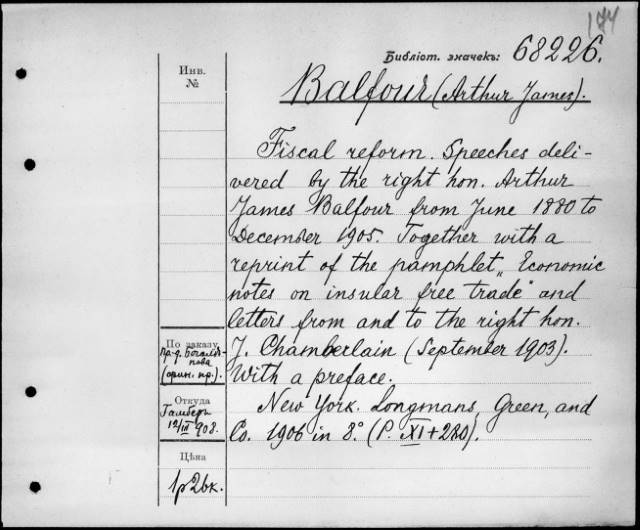 174
Библіот. значекъ: 68226.
Инв.
№
Balfour (Arthur James).
Fiscal reform. Speeches deli-
vered by the right hon. Arthur
James Balfour from June 1880 to
December 1905. Together with a
reprint of the pamphlet „Economic
notes on insular free trade" and
letters from and to the right hon.
J. Chamberlain (September 1903).
With a preface.
New York. Longmans, Green, and
Co. 1906 in 8.° (P. XI+280).
По заказу
пр-д. Боголѣ-
пова
(орин. пр.).
Откуда
12/III 908.
Цѣна
1р 2вк.